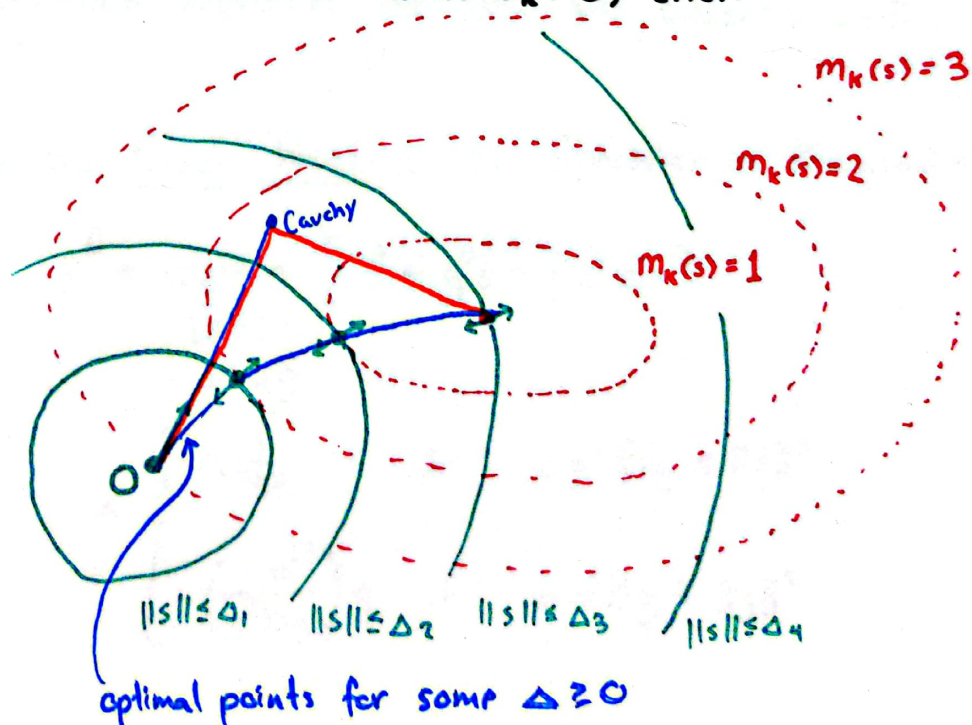 mₖ(s)=3
mₖ(s)=2
Cauchy
mₖ(s)=1
O
||s||≤Δ₁
||s||≤Δ₂
||s||≤Δ₃
||s||≤Δ₄
optimal points for some Δ≥0